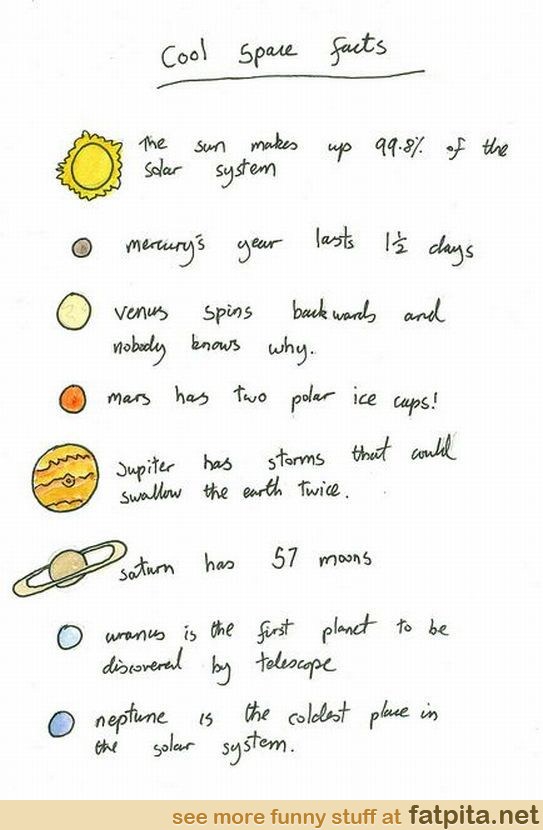 Cool Space facts
The sun makes up 99.8% of the
solar system
mercury's year lasts 1½ days
venus spins backwards and
nobody knows why.
mars has two polar ice caps!
Jupiter has storms that could
swallow the earth twice.
saturn has 57 moons
uranus is the first planet to be
discovered by telescope
neptune is the coldest place in
the solar system.
see more funny stuff at fatpita.net